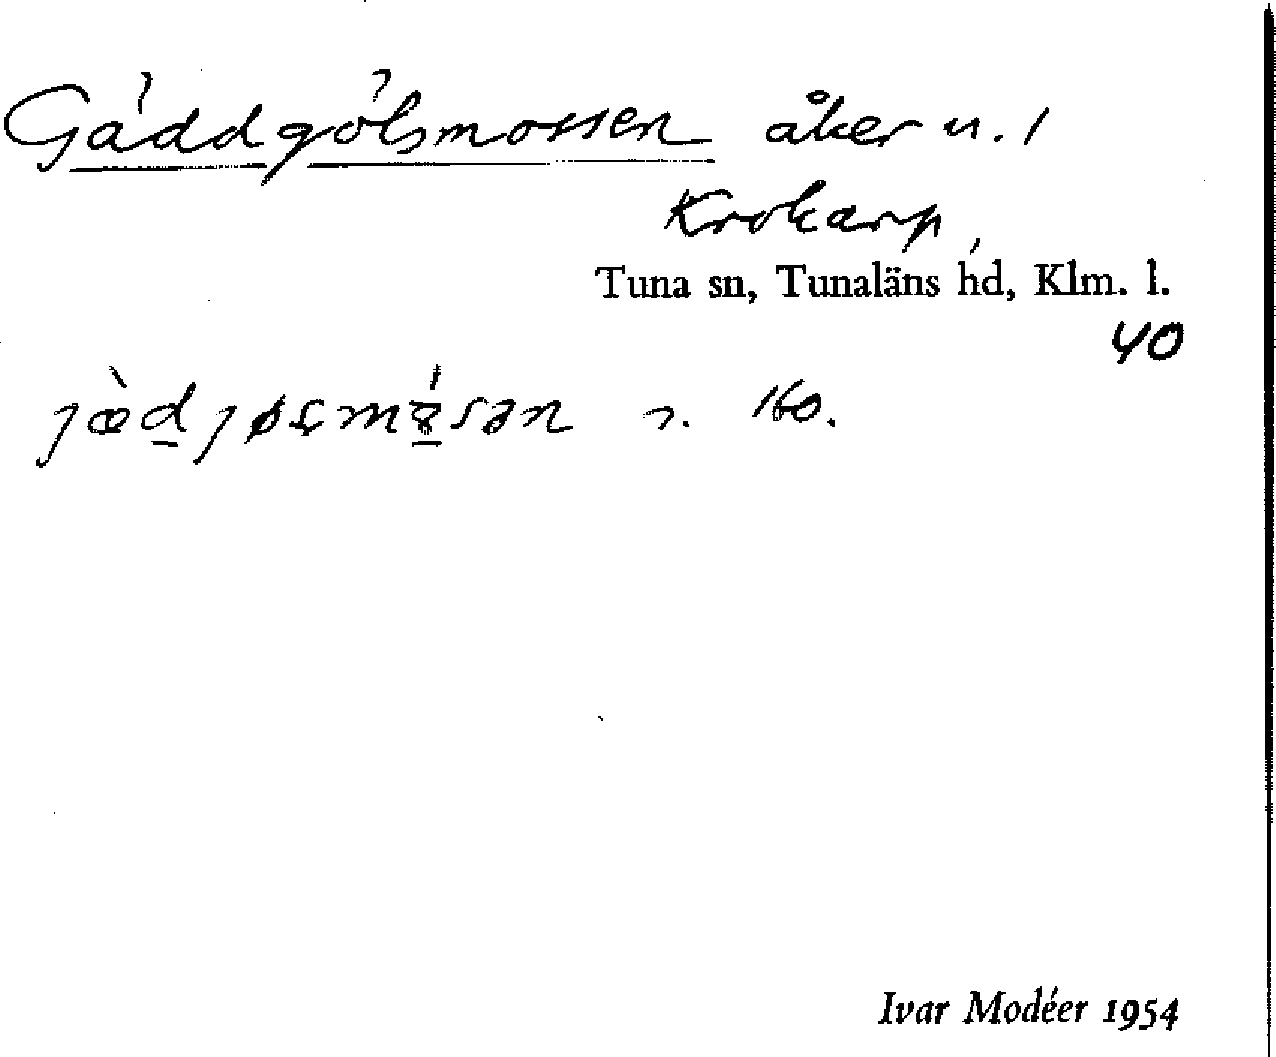 Gäddgölsmossen åker u. 1
Krokarp,
Tuna sn, Tunaläns hd, Klm. l.
40
160.
Ivar Modéer 1954